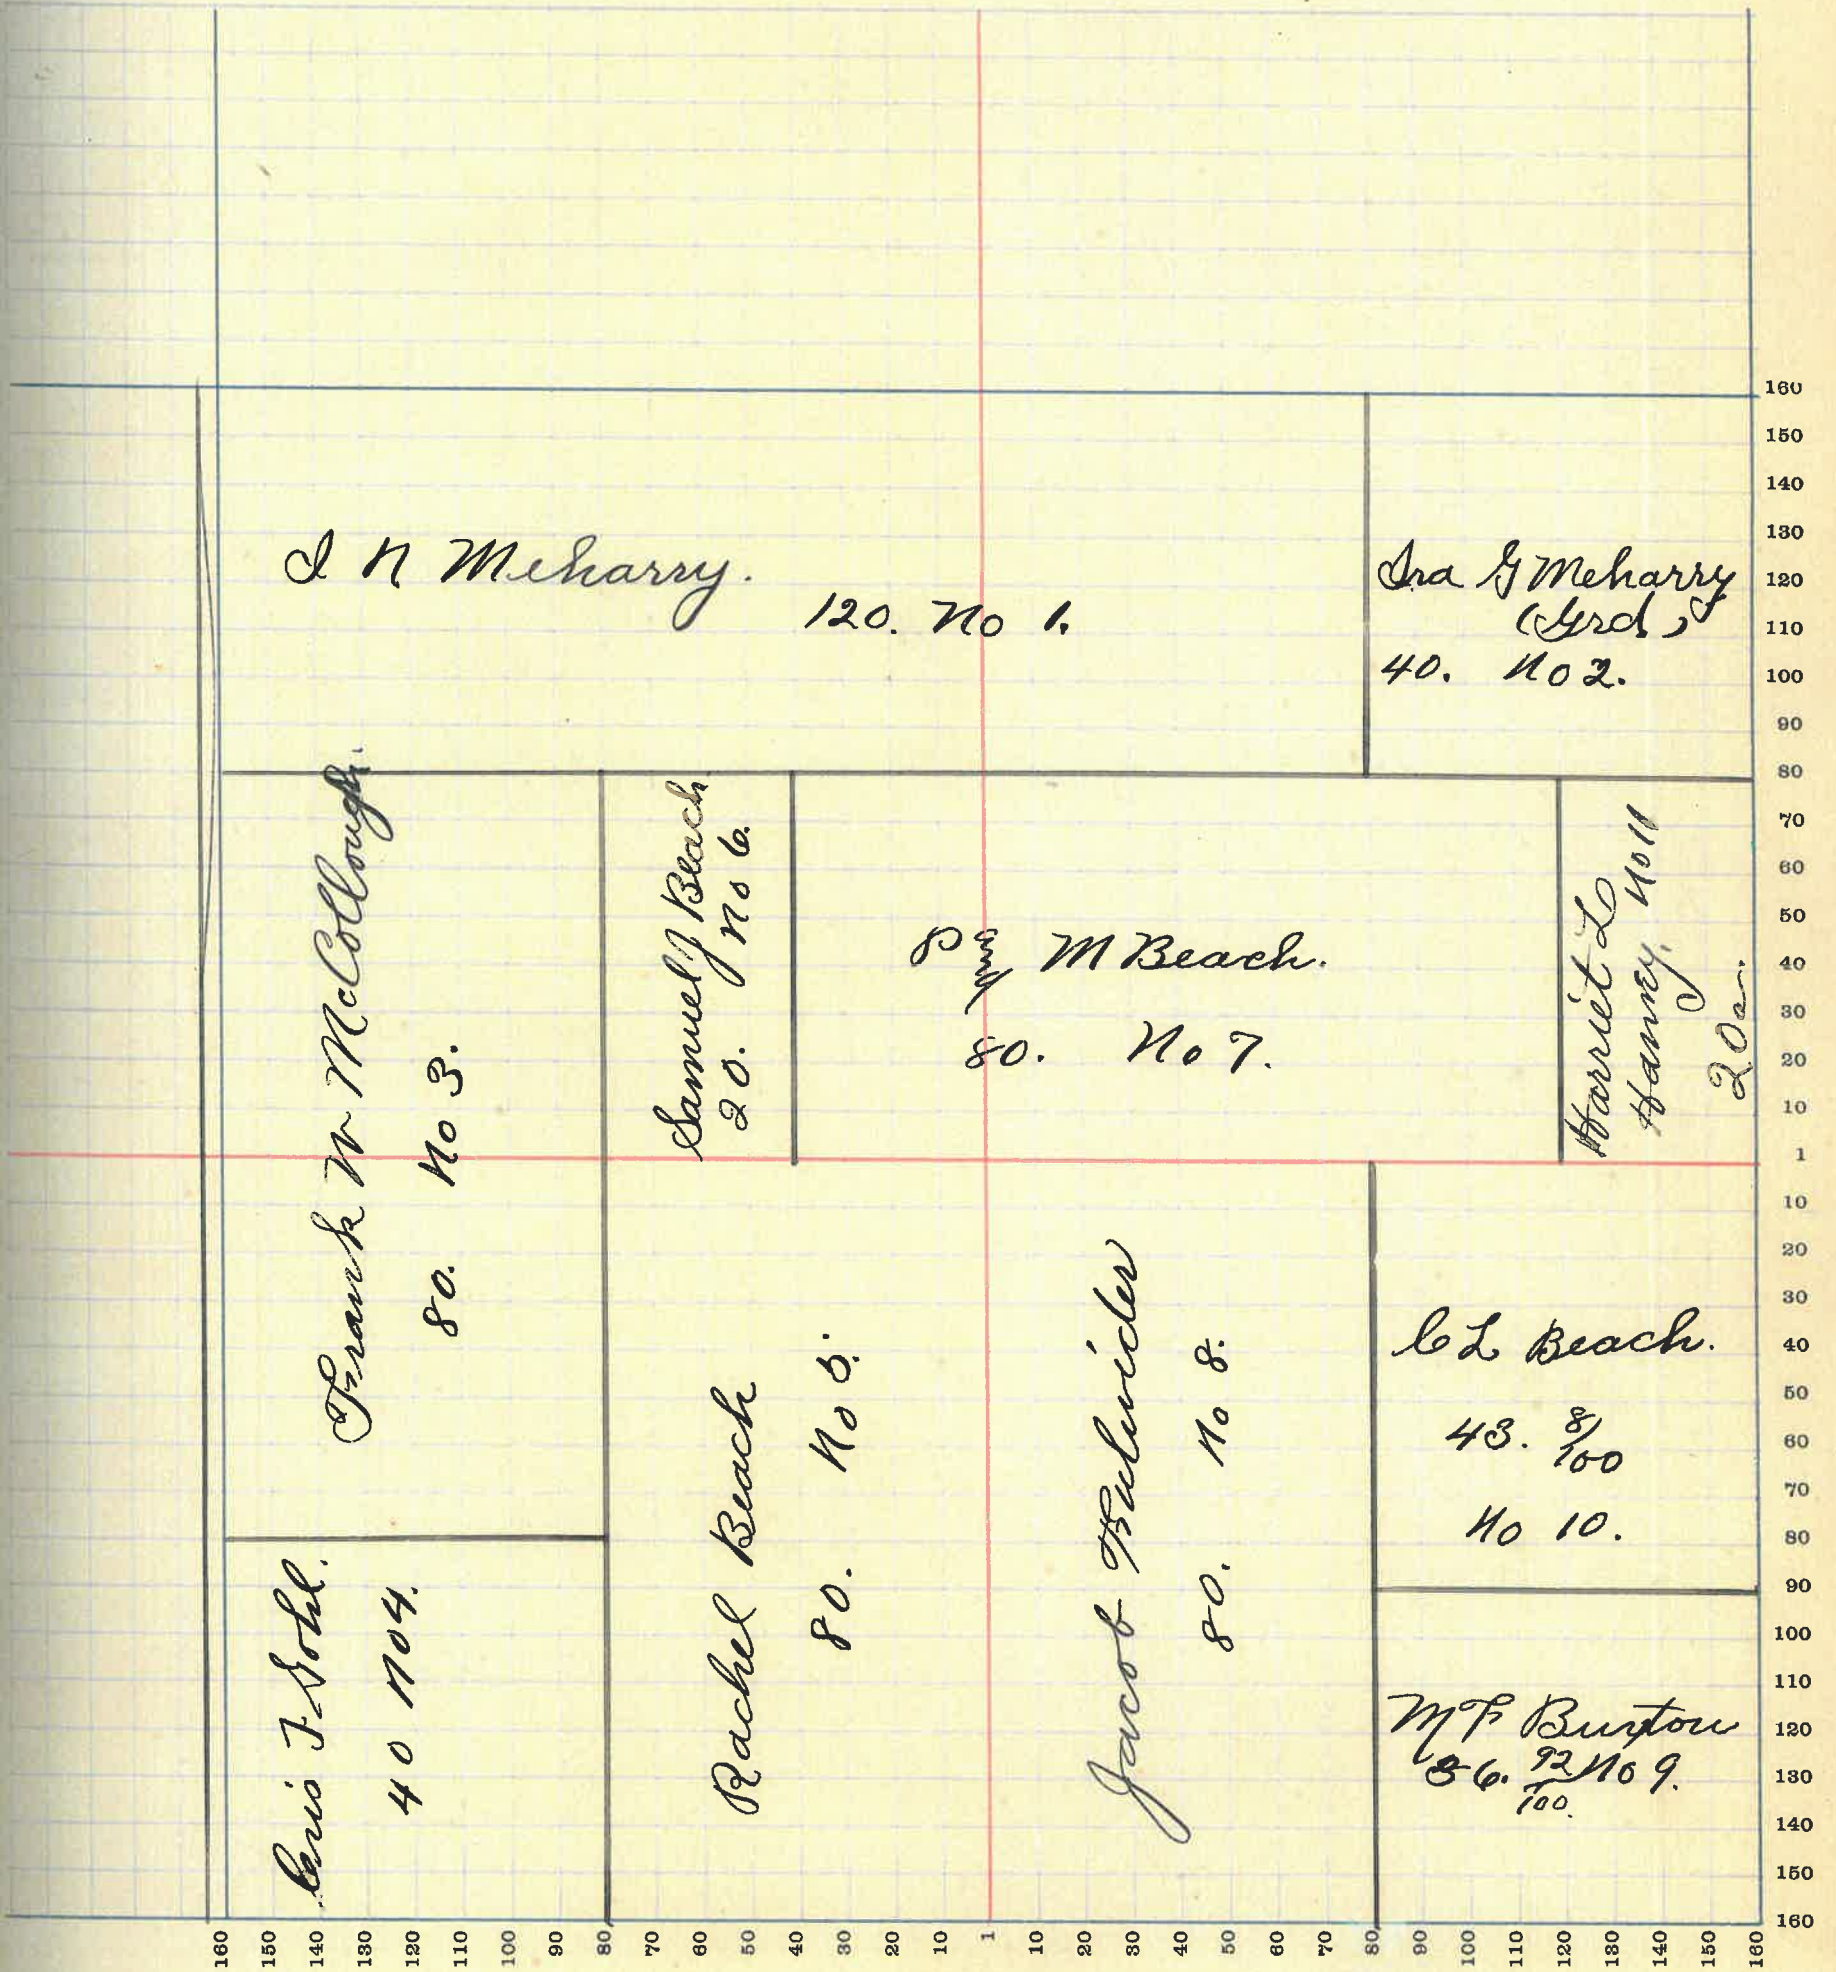 I N Meharry.
120. No 1.
Ira G Meharry
(Grd)
40. No 2.
Frank W McCollough.
80. No 3.
Samuel J Beach
20. No 6.
M Beach.
80. No 7.
Harriet L
Haney. No 11
20a.
J Gohl.
40 No 4.
Rachel Beach
80. No 5.
Jacob Fulwider
80. No 8.
C L Beach.
43. 8/100
No 10.
M F Buxton
36. 92/100. No 9.
160
150
140
130
120
110
100
90
80
70
60
50
40
30
20
10
1
10
20
30
40
50
60
70
80
90
100
110
120
130
140
150
160
160 150 140 130 120 110 100 90 80 70 60 50 40 30 20 10 1 10 20 30 40 50 60 70 80 90 100 110 120 130 140 150 160